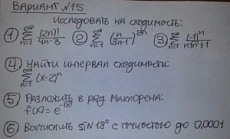 ВАРИАНТ №15
Исследовать на сходимость:
① ∑ (2n)! / 4n-3 ② ∑ (n / 3n-1) ③ ∑ (-1)ⁿ
④ Найти интервал сходимости:
∑ (x-2)ⁿ
⑤ Разложить в ряд Маклорена:
f(x)=e
⑥ Вычислить sin 18° с точностью до 0,0001